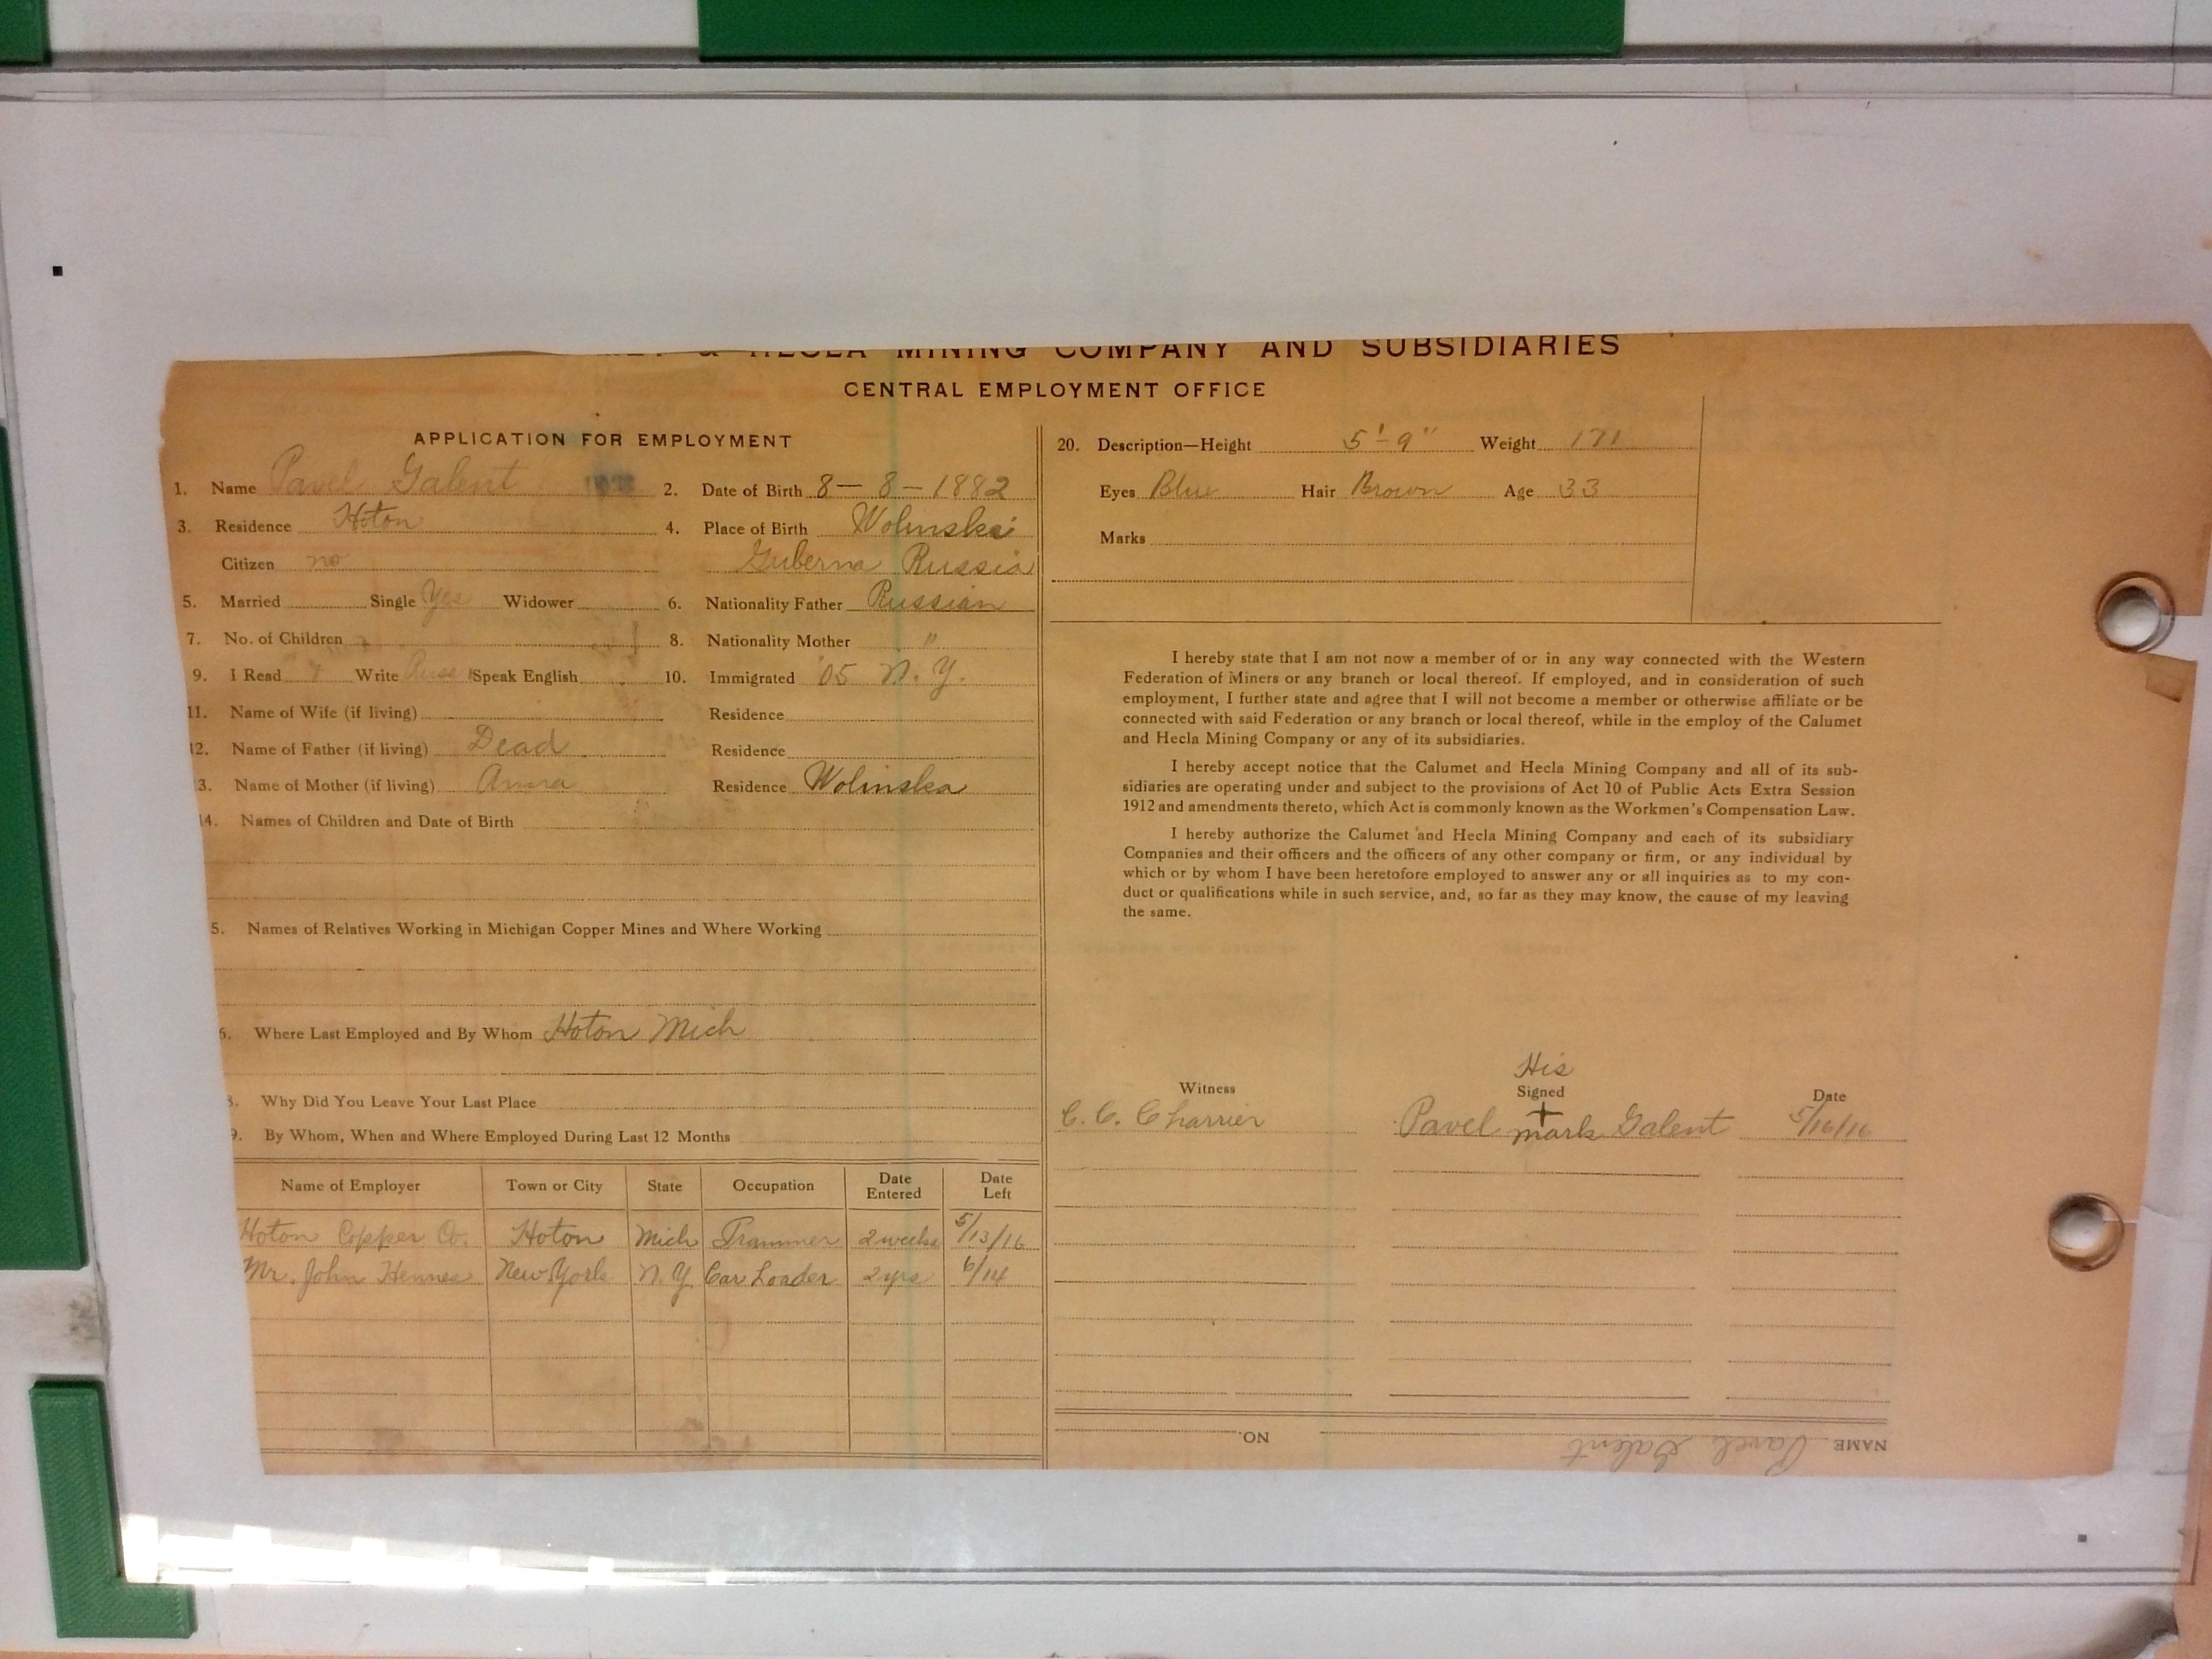 & HECLA MINING COMPANY AND SUBSIDIARIES
CENTRAL EMPLOYMENT OFFICE
APPLICATION FOR EMPLOYMENT
1. Name Pavel Galent 2. Date of Birth 8 - 8 - 1882
3. Residence Hoton 4. Place of Birth Wolinski
Citizen no Guberna Russia
5. Married Single Yes Widower 6. Nationality Father Russian
7. No. of Children 8. Nationality Mother "
9. I Read Write Russ Speak English 10. Immigrated '05 N.Y.
11. Name of Wife (if living) Residence
12. Name of Father (if living) Dead Residence
13. Name of Mother (if living) Anna Residence Wolinska
14. Names of Children and Date of Birth
5. Names of Relatives Working in Michigan Copper Mines and Where Working
6. Where Last Employed and By Whom Hoton Mich
8. Why Did You Leave Your Last Place
9. By Whom, When and Where Employed During Last 12 Months
Name of Employer Town or City State Occupation Date Entered Date Left
Hoton Copper Co. Hoton Mich Trammer 2 weeks 5/13/16
Mr. John Hennes New York N.Y. Car Loader 2 yrs 6/14
20. Description—Height 5'-9" Weight 171
Eyes Blue Hair Brown Age 33
Marks
I hereby state that I am not now a member of or in any way connected with the Western
Federation of Miners or any branch or local thereof. If employed, and in consideration of such
employment, I further state and agree that I will not become a member or otherwise affiliate or be
connected with said Federation or any branch or local thereof, while in the employ of the Calumet
and Hecla Mining Company or any of its subsidiaries.
I hereby accept notice that the Calumet and Hecla Mining Company and all of its sub-
sidiaries are operating under and subject to the provisions of Act 10 of Public Acts Extra Session
1912 and amendments thereto, which Act is commonly known as the Workmen's Compensation Law.
I hereby authorize the Calumet and Hecla Mining Company and each of its subsidiary
Companies and their officers and the officers of any other company or firm, or any individual by
which or by whom I have been heretofore employed to answer any or all inquiries as to my con-
duct or qualifications while in such service, and, so far as they may know, the cause of my leaving
the same.
His
Witness Signed Date
C. C. Charrier Pavel + mark Galent 5/16/16
NAME Pavel Galent NO.